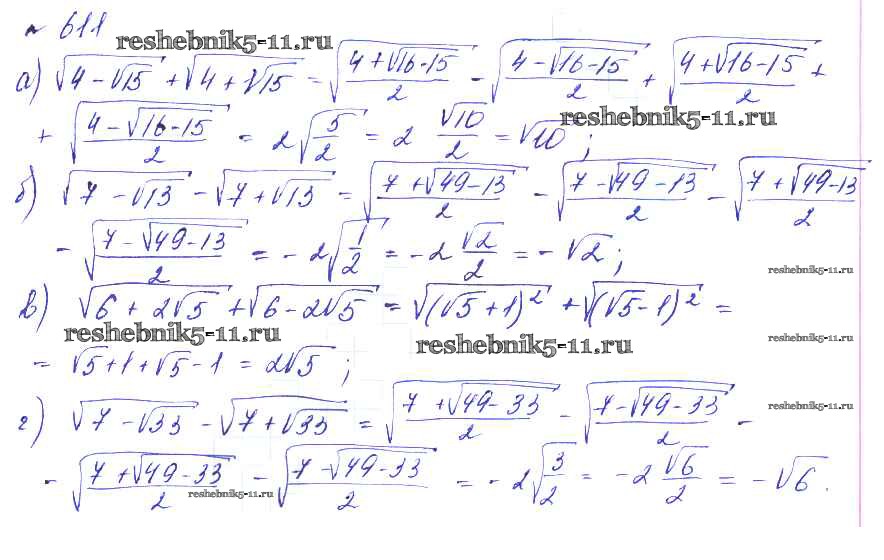 № 611
reshebnik5-11.ru
а) √(4-√15) + √(4+√15) = √((4+√(16-15))/2) - √((4-√(16-15))/2) + √((4+√(16-15))/2) +
+ √((4-√(16-15))/2) = 2√(5/2) = 2 √10/2 = √10;
reshebnik5-11.ru
б) √(7-√13) - √(7+√13) = √((7+√(49-13))/2) - √((7-√(49-13))/2) - √((7+√(49-13))/2)
- √((7-√(49-13))/2) = -2√(1/2) = -2 √2/2 = -√2;
reshebnik5-11.ru
в) √(6+2√5) + √(6-2√5) = √((√5+1)²) + √((√5-1)²) =
reshebnik5-11.ru
reshebnik5-11.ru
reshebnik5-11.ru
= √5+1+√5-1 = 2√5;
г) √(7-√33) - √(7+√33) = √((7+√(49-33))/2) - √((7-√(49-33))/2) -
reshebnik5-11.ru
- √((7+√(49-33))/2) - √((7-√(49-33))/2) = -2√(3/2) = -2 √6/2 = -√6.
reshebnik5-11.ru